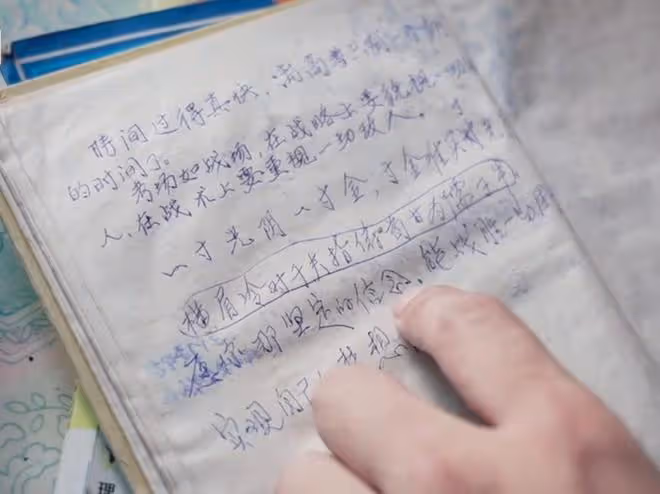 时间过得真快,离高考只剩一个
的时间了。
考场如战场,在战略上要藐视一切
人,在战术上要重视一切敌人。
一寸光阴一寸金,寸金难买寸光
横眉冷对千夫指俯首甘为孺子牛
愿你那坚定的信念,能战胜一切困
实现自己梦想
理